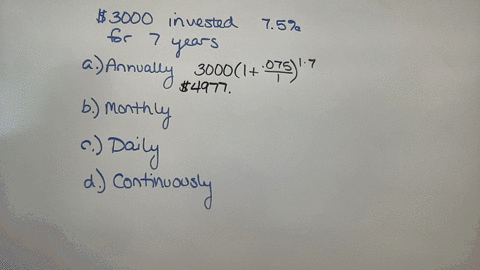 $3000 invested 7.5%
for 7 years
a.) Annually 3000(1+ .075/1)^1·7
$4977.
b.) Monthly
c.) Daily
d.) Continuously